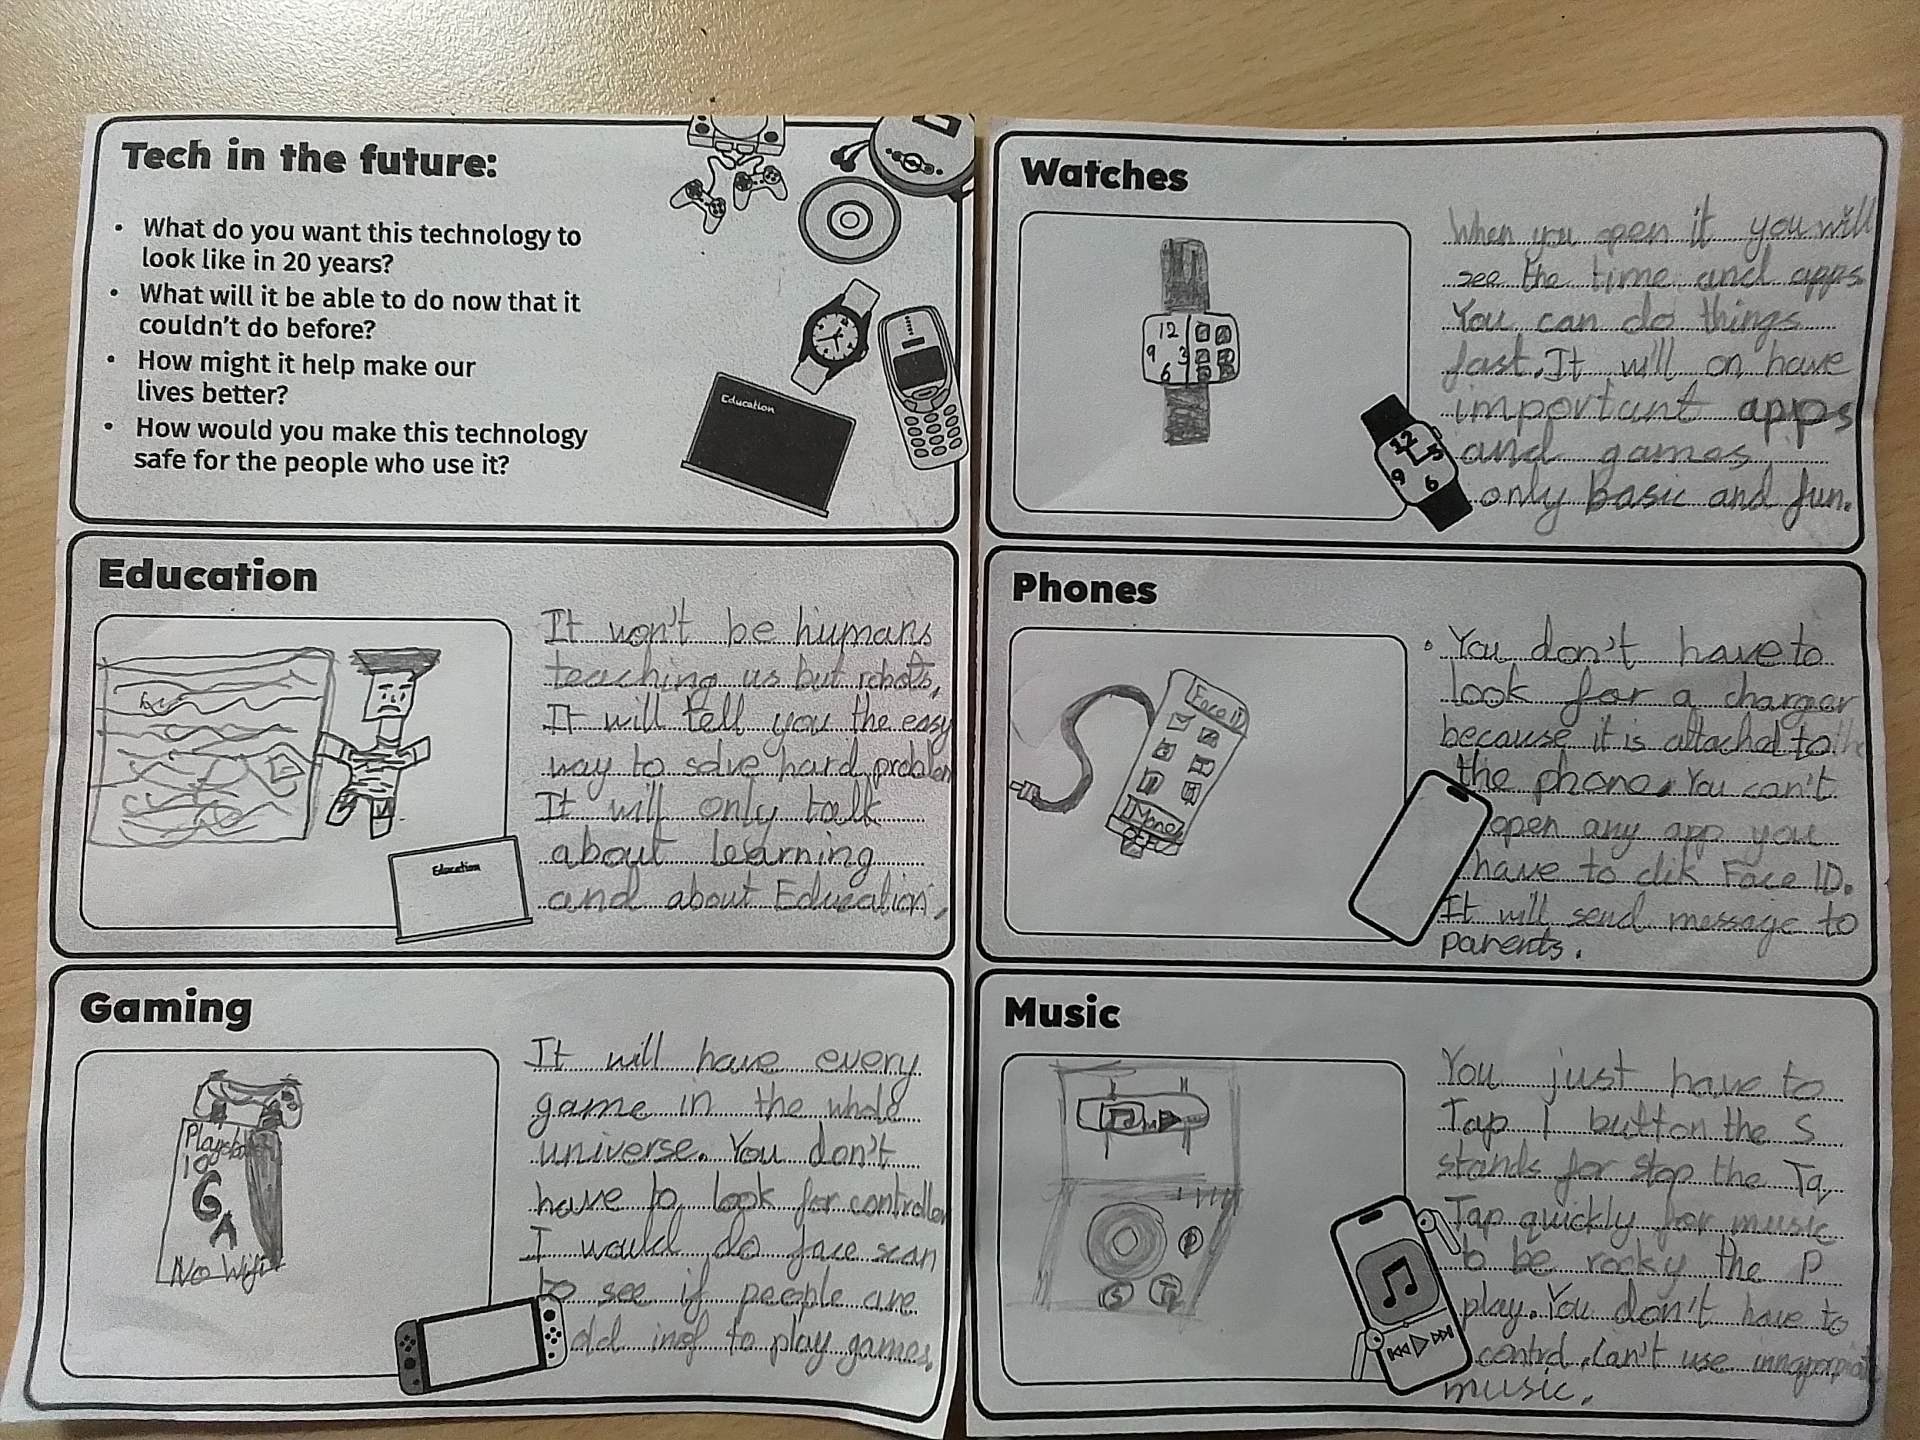 Tech in the future:
• What do you want this technology to
look like in 20 years?
• What will it be able to do now that it
couldn't do before?
• How might it help make our
lives better?
• How would you make this technology
safe for the people who use it?
Education
Education
It won't be humans
teaching us but robots,
It will tell you the easy
way to solve hard problem
It will only talk
about learning
and about Education.
Education
Gaming
Playstation
10
G
A
No Wifi
It will have every
game in the whole
universe. You don't
have to look for controller
I would do face scan
to see if people are
old inof to play games.
Watches
12
9 3
6
When you open it you will
see the time and apps.
You can do things
fast. It will on have
important apps
and games
only basic and fun.
12
3
9 6
Phones
Face ID
Money
• You don't have to
look for a charger
because it is attached to the
the phone. You can't
open any app you
have to clik Face ID.
It will send message to
parents.
Music
P
S Ta
You just have to
Tap 1 button the S
stands for stop the Ta,
Tap quickly for music
to be rocky the P
play. You don't have to
control. Can't use innapropriate
music.